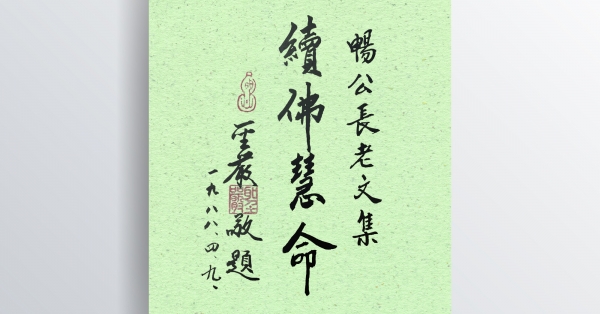 暢公長老文集
續佛慧命
聖嚴敬題
一九八八、四、九、